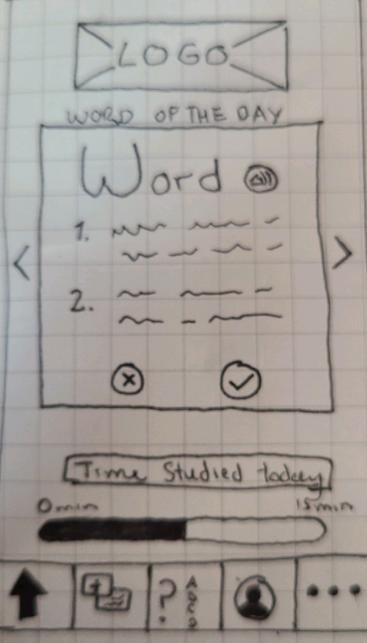 LOGO
WORD OF THE DAY
Word
<
>
1.
2.
Time Studied today
0min 15min
? A B C D